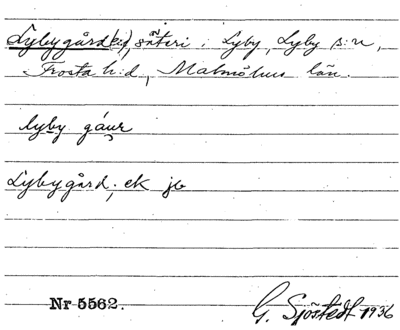 Lybygård(en), säteri i Lyby, Lyby s:n,
Frosta h:d, Malmöhus län.
lyby gáur
Lybygård; ek jb
Nr 5562.
G. Sjöstedt 1936